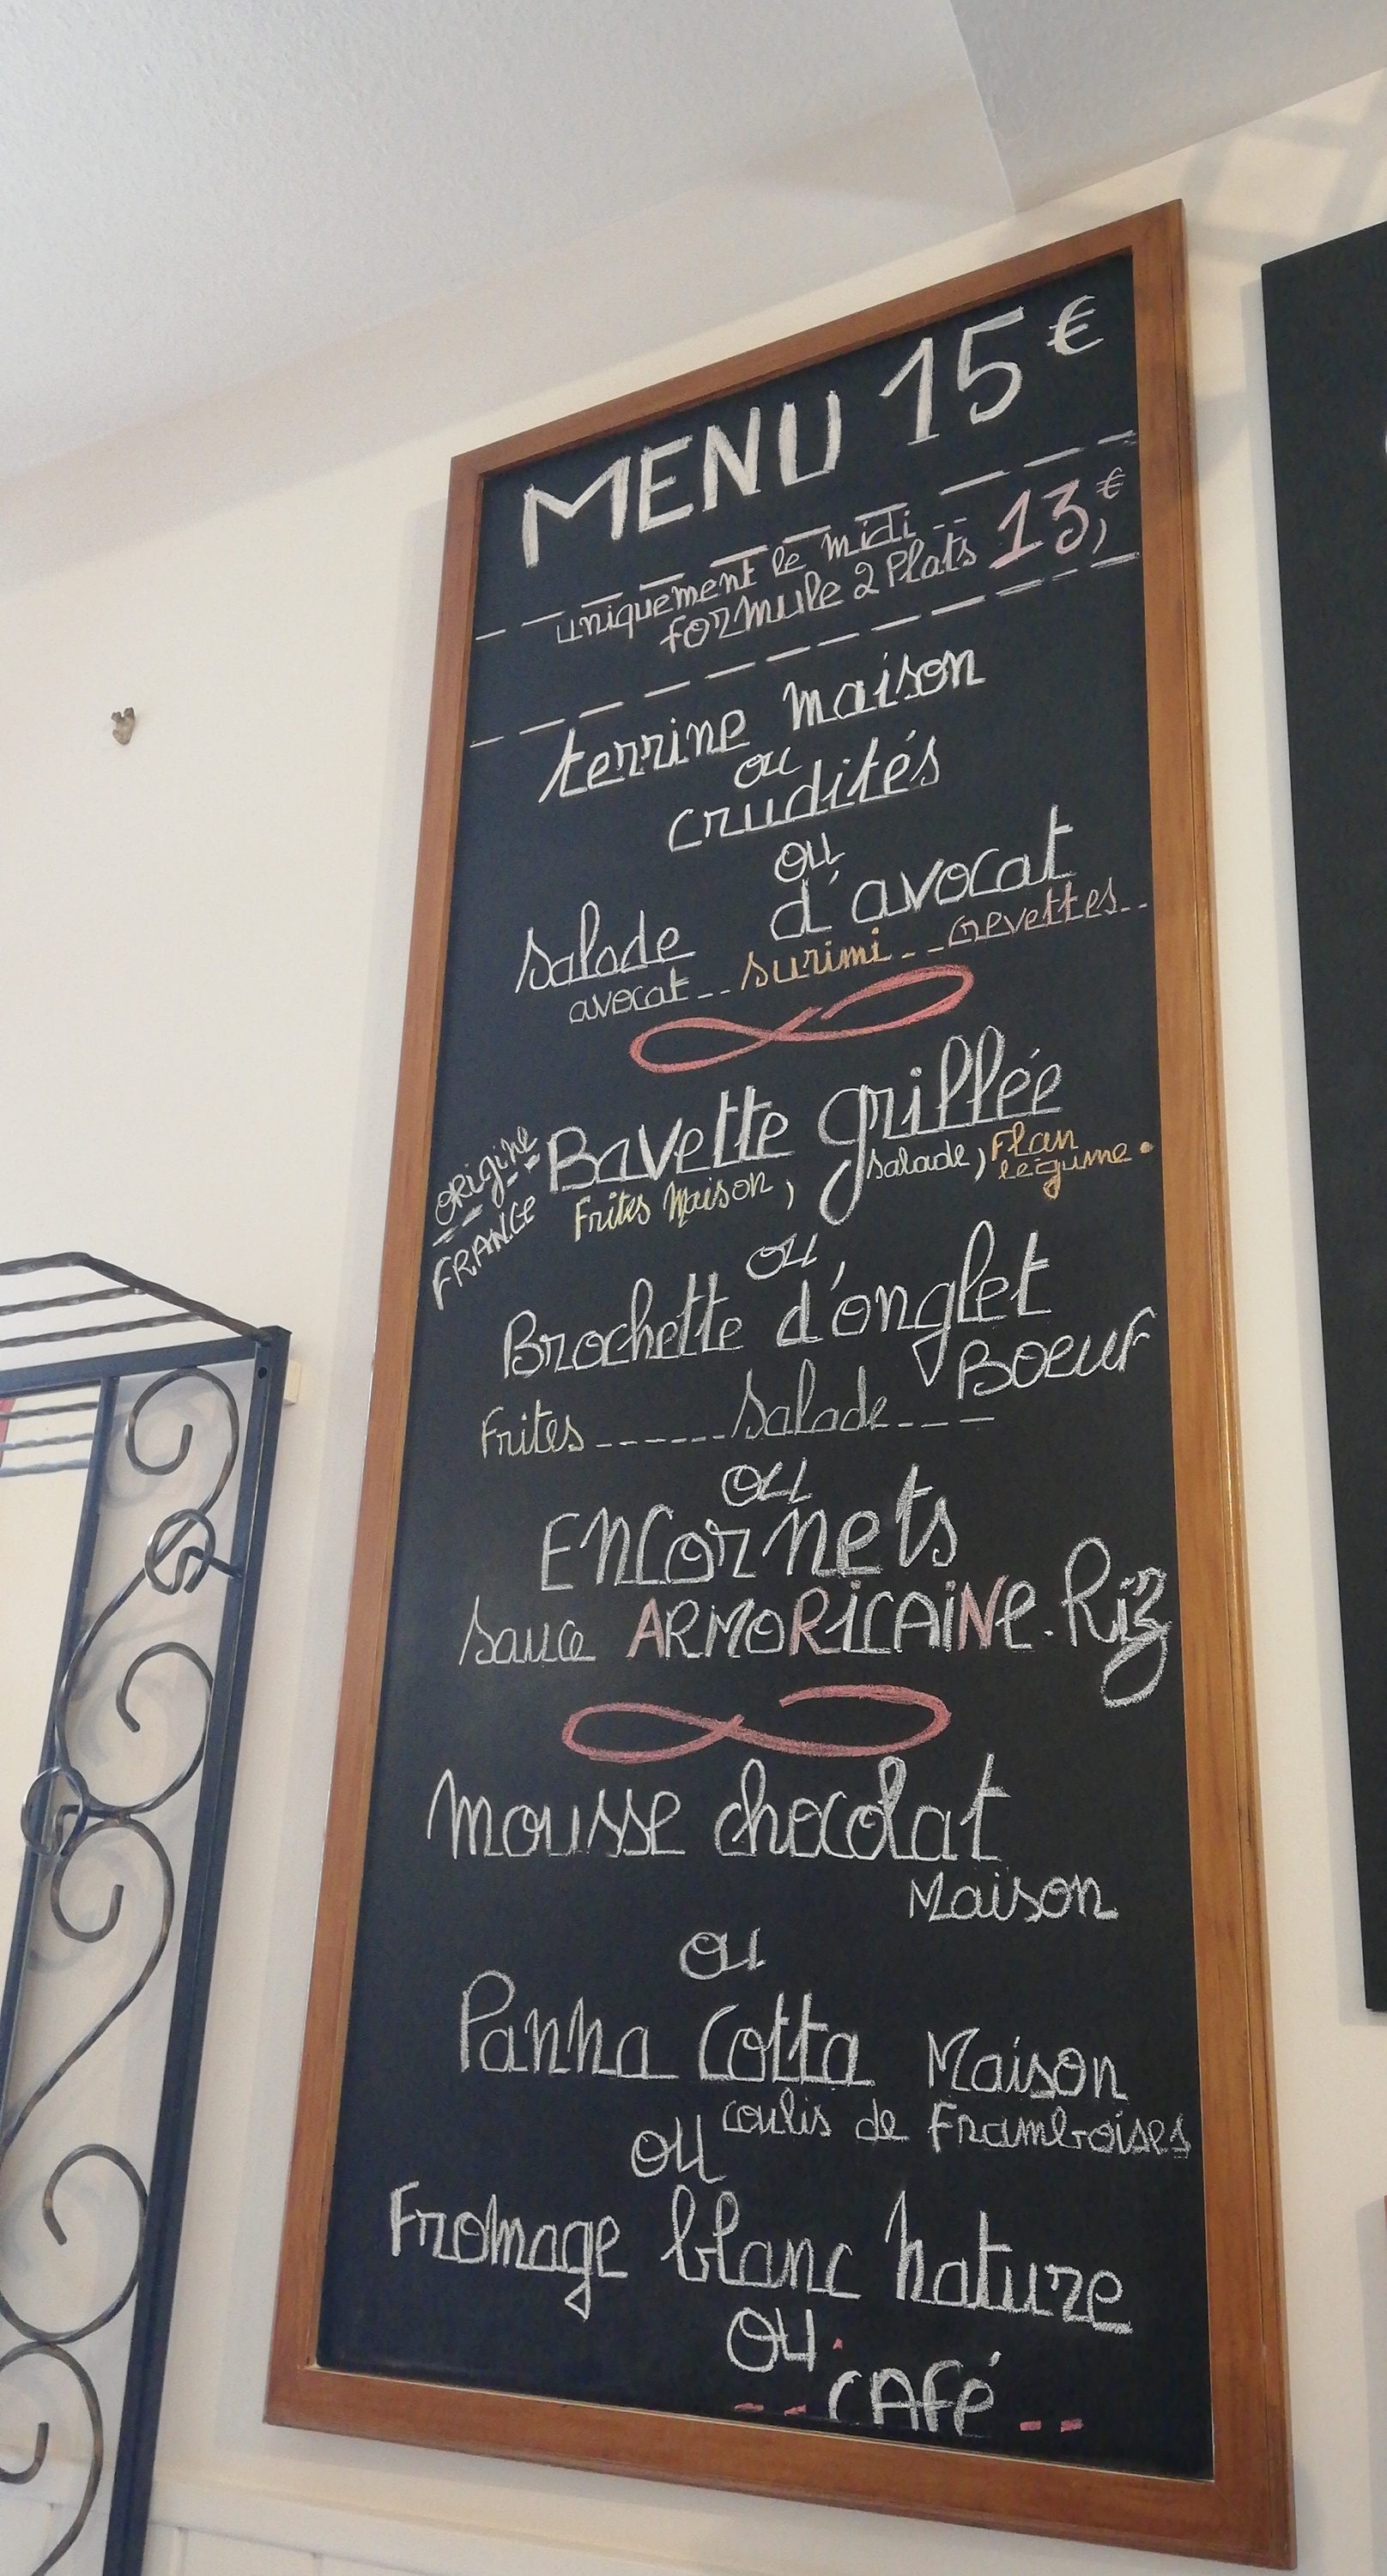 MENU 15€
uniquement le midi
formule 2 Plats 13,€
terrine maison
ou
crudités
ou
salade d'avocat
avocat surimi crevettes
origine
FRANCE
Bavette grillée
Frites Maison, salade, Flan
légume.
ou
Brochette d'onglet
Boeuf
Frites salade
ou
Encornets
sauce ARMORICAINE. Riz
mousse chocolat
Maison
ou
Panna Cotta Maison
coulis de Framboises
ou
Fromage blanc Nature
ou
CAfé